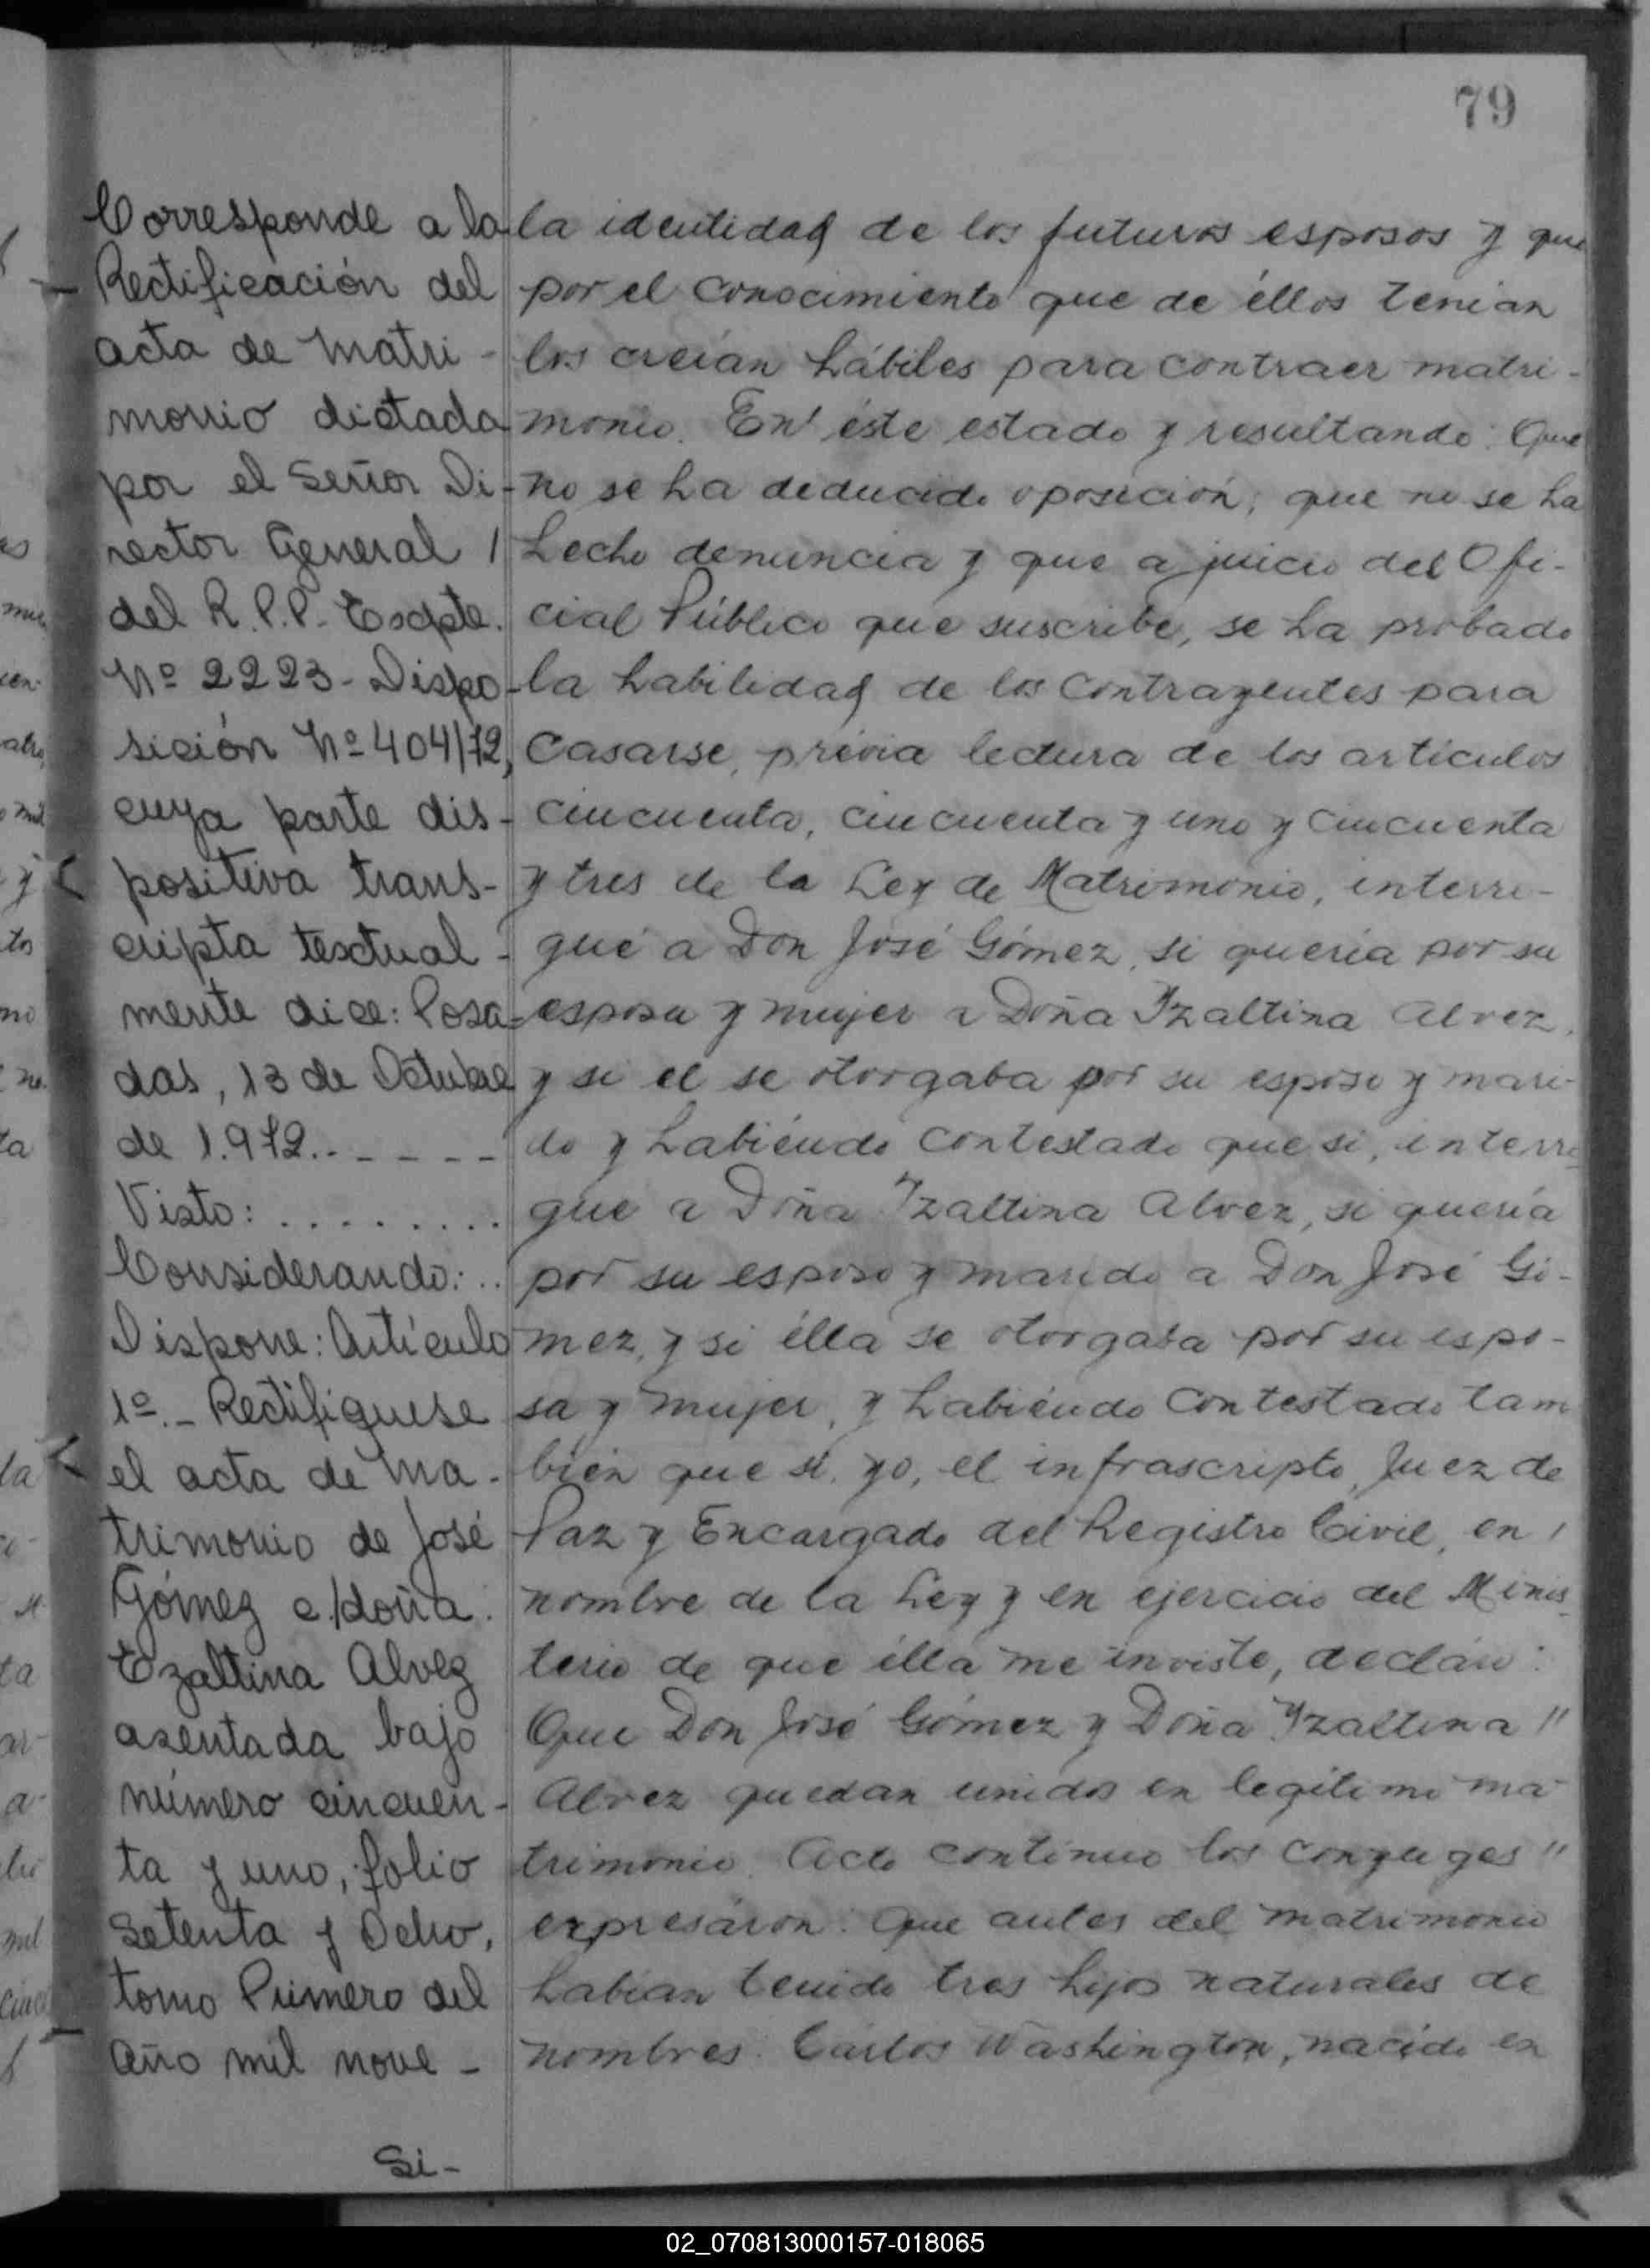 79
Corresponde a la
Rectificación del
acta de matri-
monio dictada
por el Señor Di-
rector General /
del R.P.P. Expte.
Nº 2223 - Dispo-
sición Nº 404/72,
cuya parte dis-
positiva trans-
cripta textual-
mente dice: Posa-
das, 13 de Octubre
de 1.972..-----
Visto: .........
Considerando: ..
Dispone: Artículo
1º.- Rectifiquese
el acta de ma-
trimonio de José
Gómez c/doña
Ezaltina Alvez
asentada bajo
número cincuen-
ta y uno, folio
Setenta y Ocho,
tomo Primero del
año mil nove-
Si-
la identidad de los futuros esposos y que
por el conocimiento que de éllos tenian
los creían hábiles para contraer matri-
monio. En éste estado y resultando: Que
no se ha deducido oposición; que no se ha
hecho denuncia y que a juicio del Ofi-
cial Público que suscribe, se ha probado
la habilidad de los contrayentes para
casarse, previa lectura de los articulos
cincuenta, cincuenta y uno y cincuenta
y tres de la Ley de Matrimonio, interro-
gué a Don José Gómez, si quería por su
esposa y mujer a Doña Yzaltina Alvez,
y si el se otorgaba por su esposo y mari-
do y habiéndo contestado que si, interro-
gue a Doña Yzaltina Alvez, si quería
por su esposo y marido a Don José Gó-
mez, y si élla se otorgaba por su espo-
sa y mujer, y habiéndo contestado tam
bién que si, yo, el infrascripto, Juez de
Paz y Encargado del Registro Civil, en /
nombre de la Ley y en ejercicio del Minis-
terio de que élla me inviste, decláro:
Que Don José Gómez y Doña Yzaltina //
Alvez quedan unidos en legítimo ma-
trimonio. Acto continuo los conyuges //
expresáron: Que antes del matrimonio
habían tenido tres hijos naturales de
nombres: Carlos Washington, nacido en
02_070813000157-018065